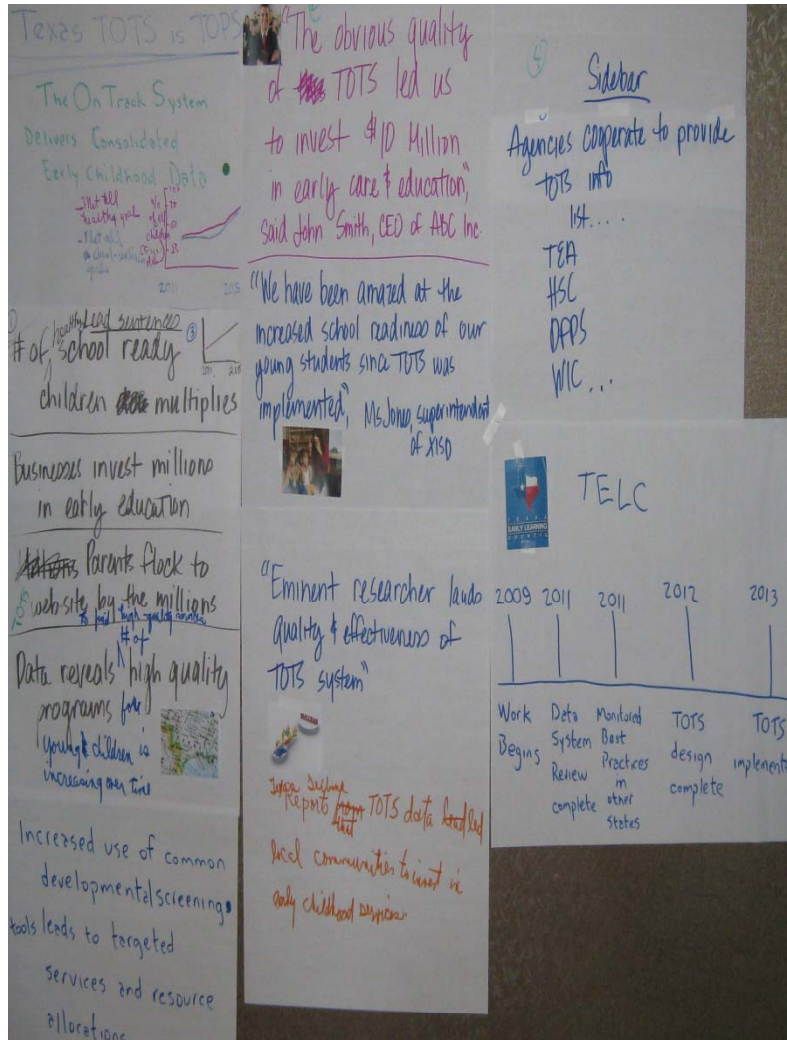 Texas TOTS is TOPS
The OnTrack System
Delivers Consolidated
Early Childhood Data
that all
healthy goal
that all
school-readiness
goals
% of
children
100
75
50
25
2011 2015
Lead sentences
# of healthy school ready
children multiplies
3
2011
Businesses invest millions
in early education
Parents flock to
TOTS web-site by the millions
to find high-quality
# of
Data reveals high quality
programs for
young children is
increasing over time
Increased use of common
developmental screening
tools leads to targeted
services and resource
allocations
"The obvious quality
of TOTS led us
to invest $10 Million
in early care & education,"
said John Smith, CEO of ABC Inc.
"We have been amazed at the
increased school readiness of our
young students since TOTS was
implemented," Ms Jones, superintendent
of XISD
"Eminent researcher lauds
quality & effectiveness of
TOTS system"
Reports that TOTS data led
local communities to invest in
early childhood services.
4
Sidebar
Agencies cooperate to provide
TOTS info
list....
TEA
HSC
DFPS
WIC...
TEXAS
EARLY LEARNING
COUNCIL
TELC
2009 2011 2011 2012 2013
Work Begins
Data System Review complete
Monitored Best Practices in other states
TOTS design complete
TOTS implement